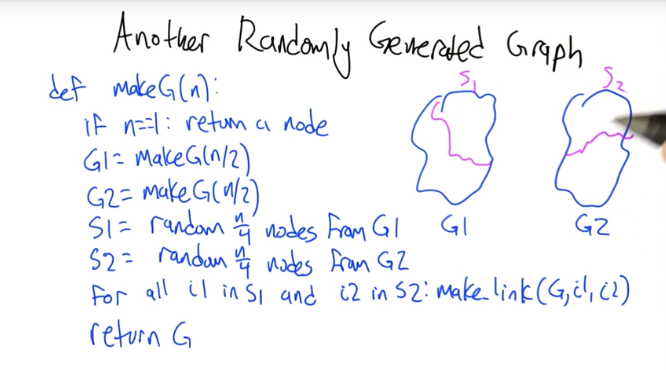 Another Randomly Generated Graph
def makeG(n):
if n==1: return a node
G1= makeG(n/2)
G2= makeG(n/2)
S1= random n/4 nodes from G1
S2= random n/4 nodes from G2
For all i1 in S1 and i2 in S2: make_link(G,i1,i2)
return G
S1
S2
G1
G2